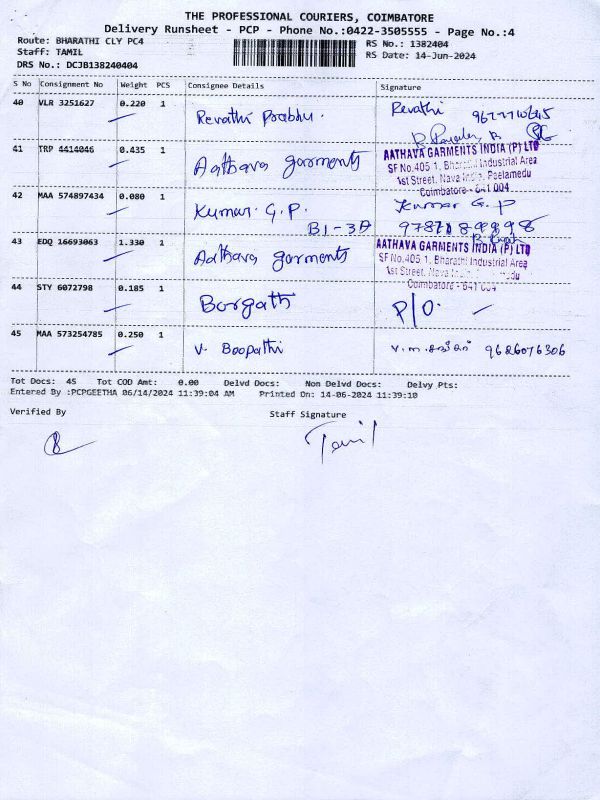 THE PROFESSIONAL COURIERS, COIMBATORE
Delivery Runsheet - PCP - Phone No.:0422-3505555 - Page No.:4
Route: BHARATHI CLY PC4
RS No.: 1382404
Staff: TAMIL
RS Date: 14-Jun-2024
DRS No.: DCJB138240404
S No Consignment No Weight PCS Consignee Details Signature
40 VLR 3251627 0.220 1 Revathi Prabhu. Revathi
41 TRP 4414046 0.435 1 Aathava garments
AATHAVA GARMENTS INDIA (P) LTD
SF No.405 1, Bharathi Industrial Area
1st Street, Nava India, Peelamedu
Coimbatore - 641 004
42 MAA 574897434 0.080 1 Kumar. G.P. Kumar G.P
B1-3A
43 EDQ 16693063 1.330 1 Aathava garments
AATHAVA GARMENTS INDIA (P) LTD
SF No.405 1, Bharathi Industrial Area
1st Street, Nava
Coimbatore - 641 004
44 STY 6072798 0.185 1 Borgath P/O.
45 MAA 573254785 0.250 1 V. Boopathi 9626076306
Tot Docs: 45 Tot COD Amt: 0.00 Delvd Docs: Non Delvd Docs: Delvy Pts:
Entered By :PCPGEETHA 06/14/2024 11:39:04 AM Printed On: 14-06-2024 11:39:10
Verified By Staff Signature
Tamil